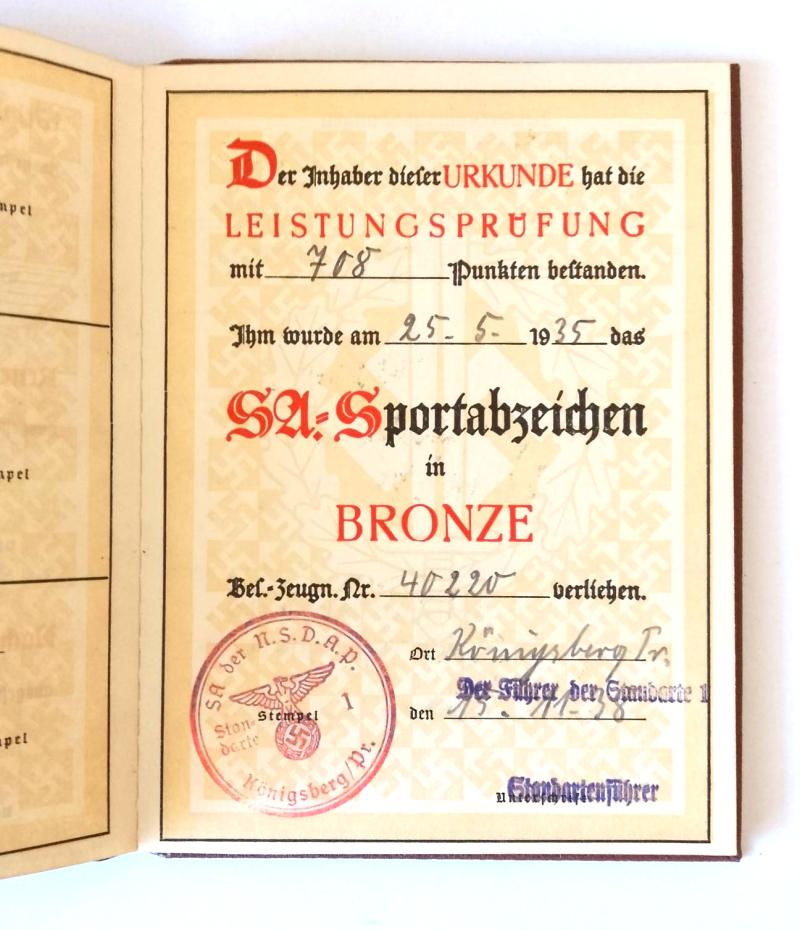 mpel
mpel
mpel
Der Inhaber dieser URKUNDE hat die
LEISTUNGSPRÜFUNG
mit 708 Punkten bestanden.
Ihm wurde am 25. 5. 1935 das
SA.-Sportabzeichen
in
BRONZE
Bes.-Zeugn. Nr. 40220 verliehen.
Ort Königsberg Pr.
Der Führer der Standarte 1
den 15. 11. 38
Standartenführer
Unterschrift
SA der N.S.D.A.P.
Stempel
1
Stan-
darte
Königsberg/Pr.